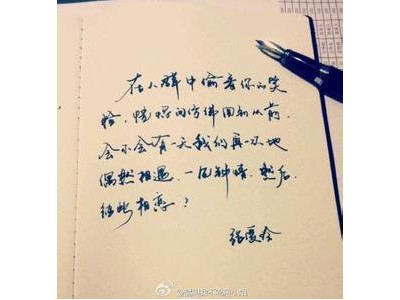 在人群中偷看你的笑
脸，恍惚间仿佛回到从前，
会不会有一天我们真的
偶然相遇，一见钟情，然后
彼此相恋？
张爱玲